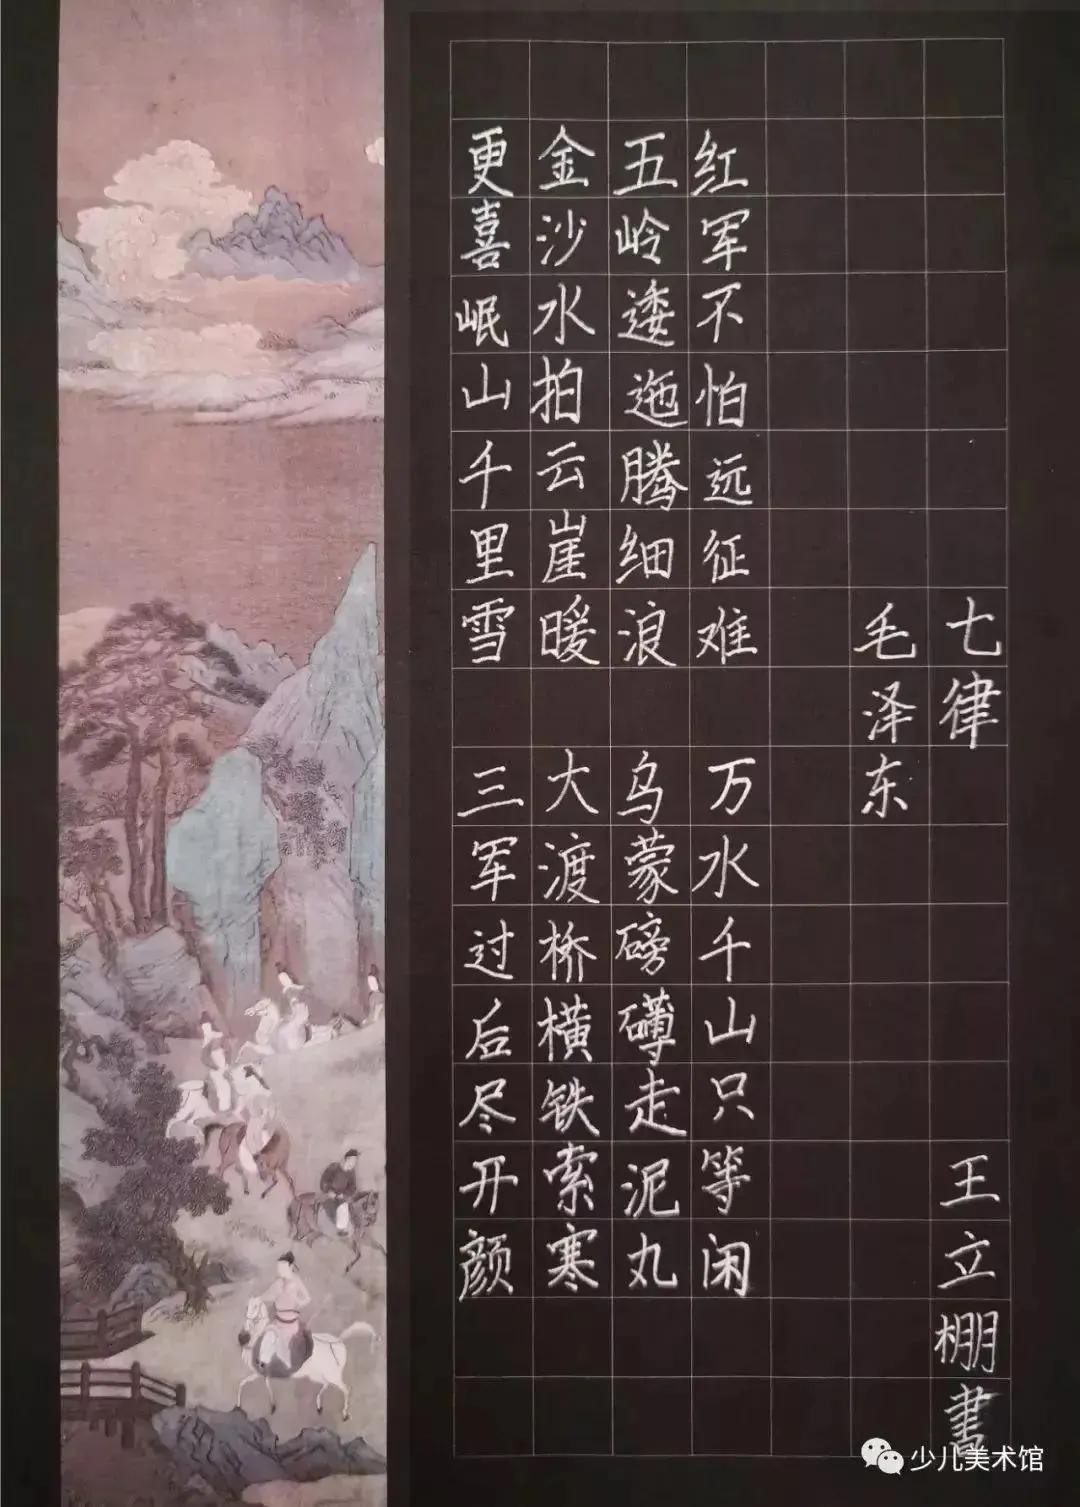 七律 王立棚書
毛泽东
红军不怕远征难 万水千山只等闲
五岭逶迤腾细浪 乌蒙磅礴走泥丸
金沙水拍云崖暖 大渡桥横铁索寒
更喜岷山千里雪 三军过后尽开颜
少儿美术馆